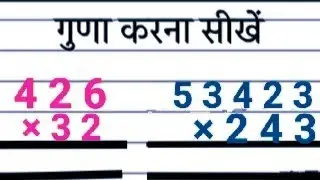 गुणा करना सीखें
426
×32
53423
×243